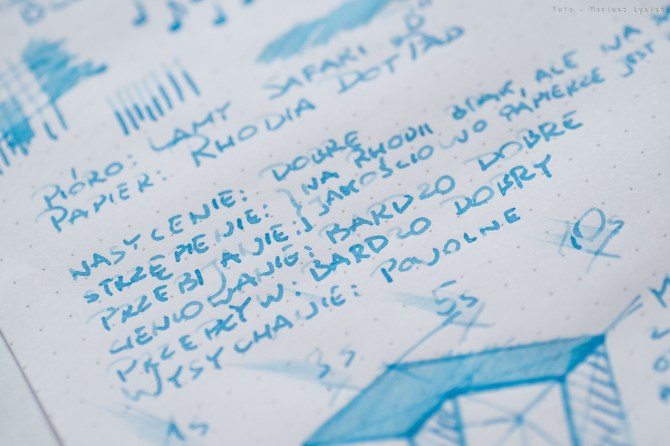 Foto - Mariusz
PIÓRO: LAMY SAFARI
PAPIER: RHODIA DOTPAD
NASYCENIE: DOBRE
STRZĘPIENIE: } NA RHODII BRAK, ALE NA
PRZEBIJANIE: } JAKOŚCIOWO PAPIERZE JEST
CIENIOWANIE: BARDZO DOBRE
PRZEPŁYW: BARDZO DOBRY
WYSYCHANIE: POWOLNE
1s
3s
5s
10s